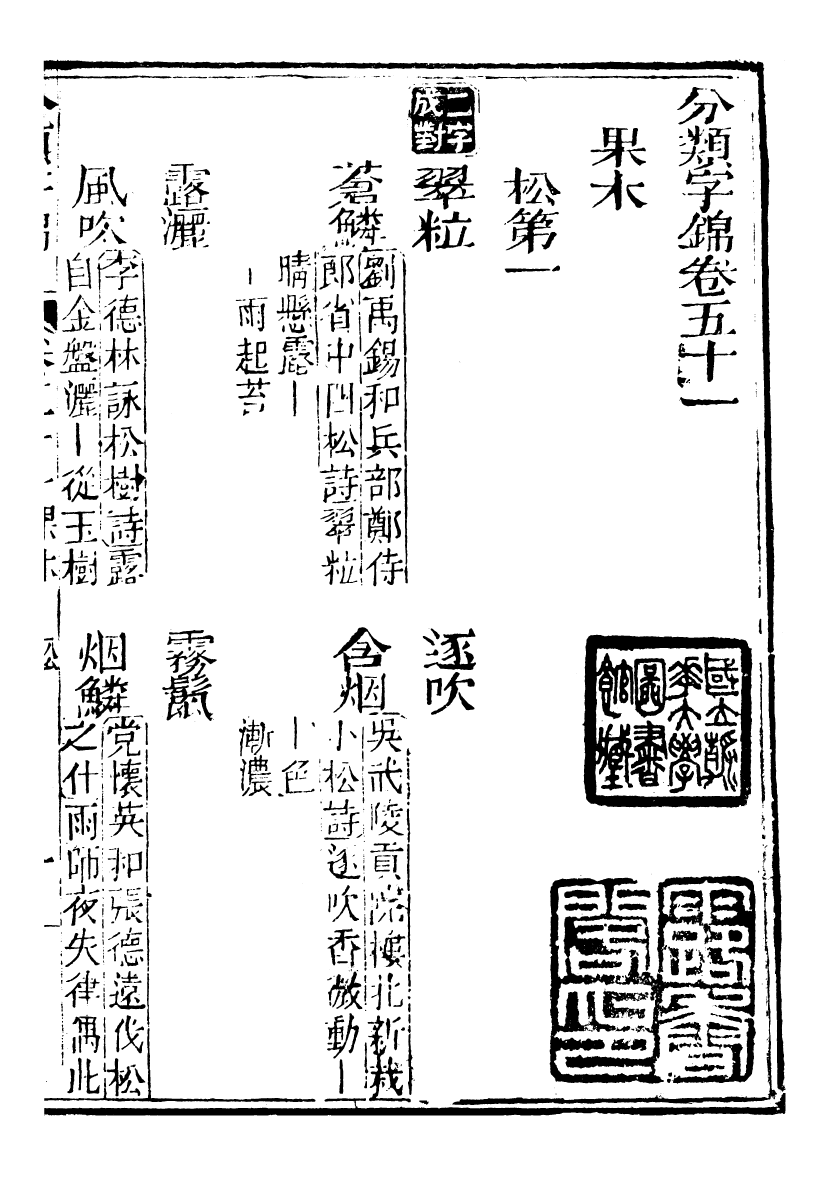 分類字錦卷五十一
果木
松第一
二字成對
翠粒
蒼鱗
劉禹錫和兵部鄭侍
郎省中四松詩翠粒
晴懸露丨
丨雨起苔
逐吹
含烟
吳武陵貢院樓北新栽
小松詩逐吹香微動丨
丨色
漸濃
露灑
風吹
李德林詠松樹詩露
自金盤灑丨從玉樹
霧鬣
烟鱗
党懷英和張德遠伐松
之什雨師夜失律偶此
國立
大學
圖書
館藏